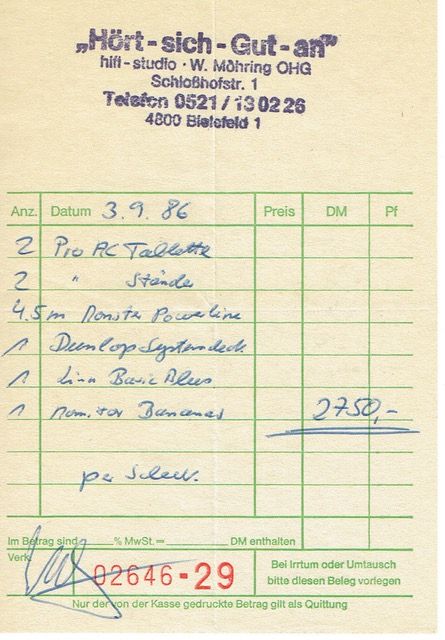 „Hört-sich-Gut-an”
hifi-studio · W. Möhring OHG
Schloßhofstr. 1
Telefon 0521/130226
4800 Bielefeld 1
Anz. Datum 3.9.86 Preis DM Pf
2 Pro AC Tablette
2 " Ständer
4.5m Monster Powerline
1 Dunlop Systemdeck
1 Linn Basic Plus
1 Bananas 2750,-
per Scheck.
Im Betrag sind % MwSt.= DM enthalten
Verk.
02646-29
Bei Irrtum oder Umtausch
bitte diesen Beleg vorlegen
Nur der von der Kasse gedruckte Betrag gilt als Quittung